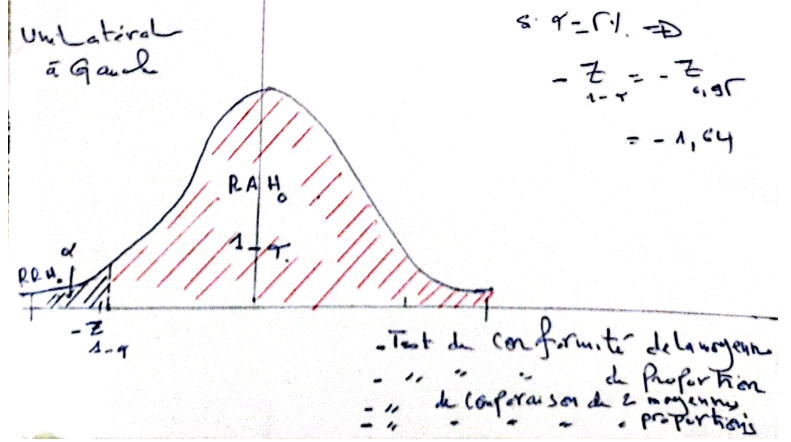 Unilatéral
à Gauche
si α = 5% ⇒
- Z 1-α = - Z 0,95
= - 1,64
RAH₀
1 - α
α
RRH₀
- Z 1-α
- Test de conformité de la moyenne
- " " " de proportion
- " de comparaison de 2 moyennes
- " " " " " proportions